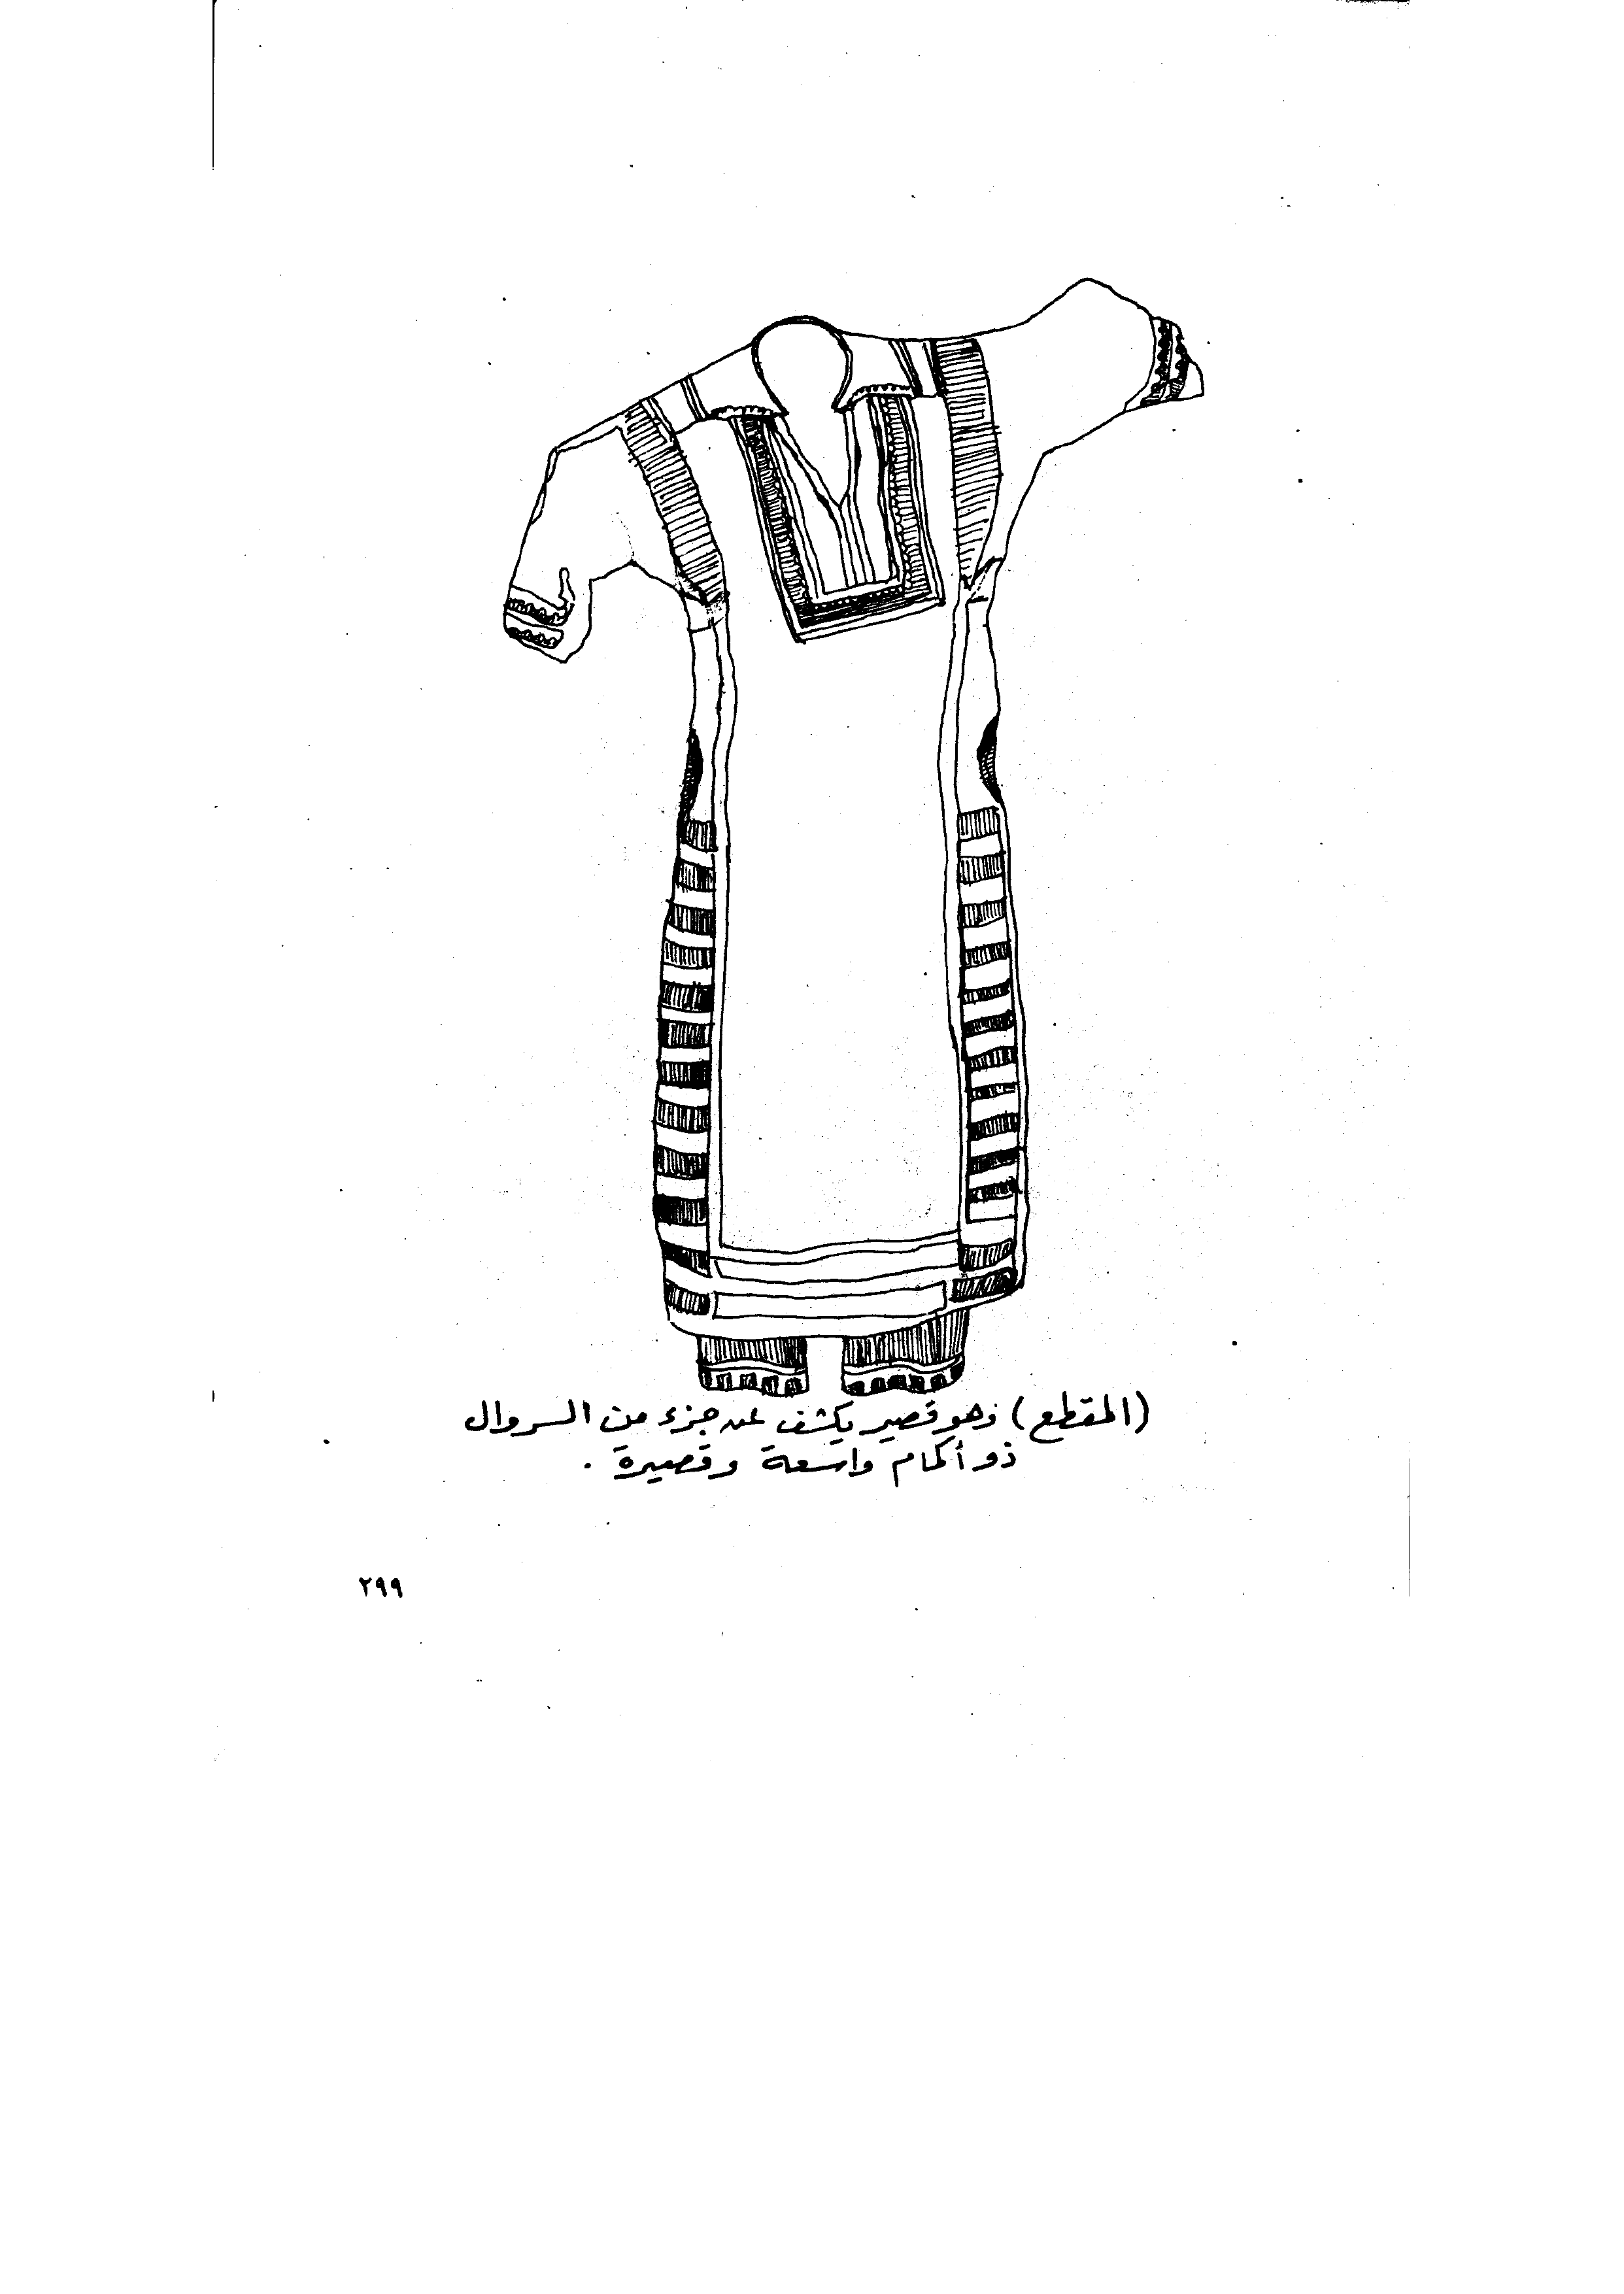 (المقطع) وهو قصير يكشف عن جزء من السروال
ذو أكمام واسعة وقصيرة .
٢٩٩